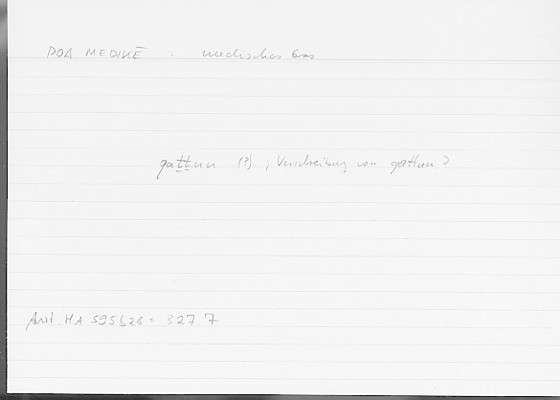 POA MEDIKĒ : medisches Gras
gattun (?) ; Verschreibung von gattun ?
Arist HA 595b28 = 327 7